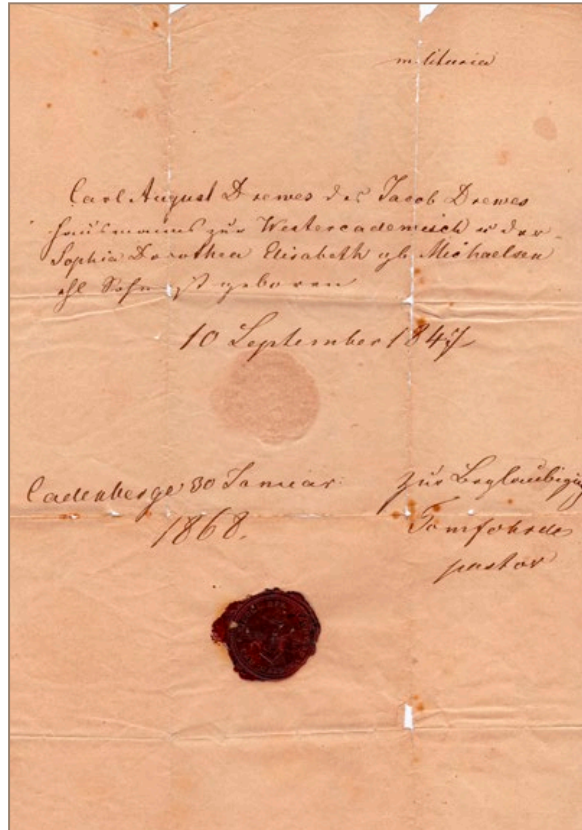 militaria
Carl August Drewes des Jacob Drewes
Hausmanns zur Westercadewisch u der
Sophia Dorothea Elisabeth gb Michaelsen
ehl Sohn ist geboren
10 September 1847
Cadenberge 30 Januar
1868.
zur Beglaubigung
Tomforde
pastor